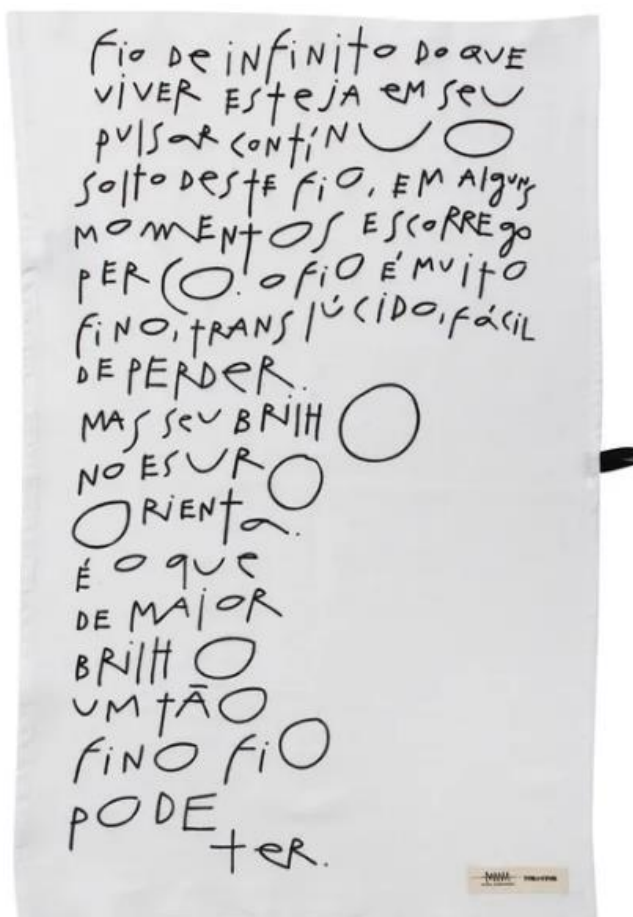 fio DE iNfiNito Do QUE
VIVER ESteJA EM SEU
PULSAR CONtíNUO
SOLtO DESTE fiO, EM AlGUNS
MOMENtOS ESCORREGO
PERCO. O fiO É MUITO
fiNO, tRANSLÚCIDO, fÁCIL
DE PERDER.
MAS SEU BRILHO
NO ESCURO
ORIENtA.
É O QUE
DE MAIOR
BRILHO
UM tÃO
fiNO fiO
PODE
tER.